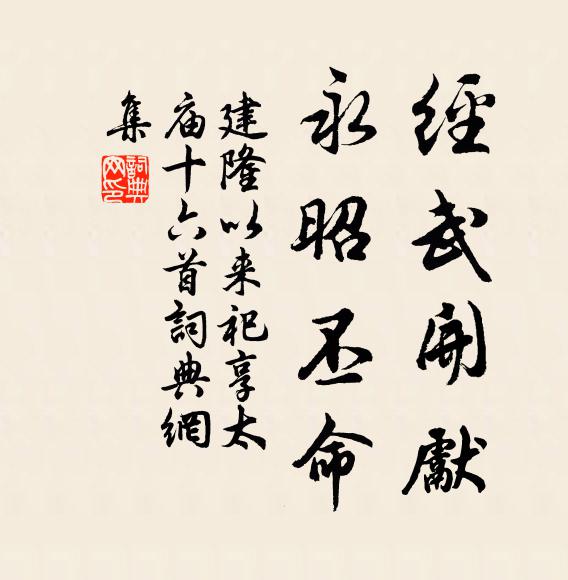 經武開獻
永昭丕命
建隆以来祀享太
庙十六首詞典網
集
詞典網印